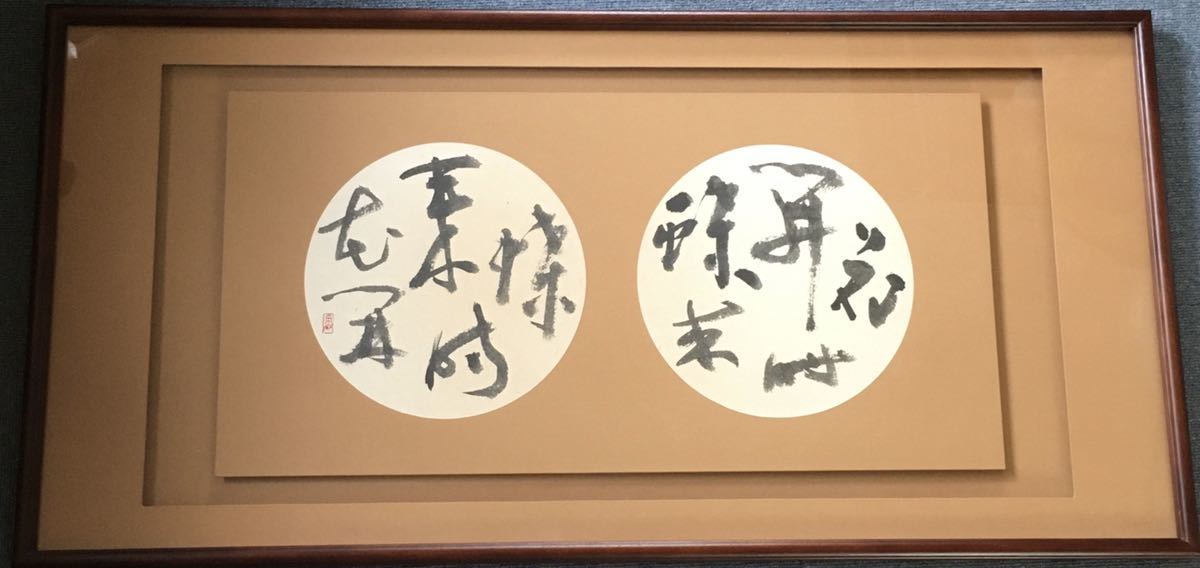 花
開時
蝶来
蝶
来時
花開